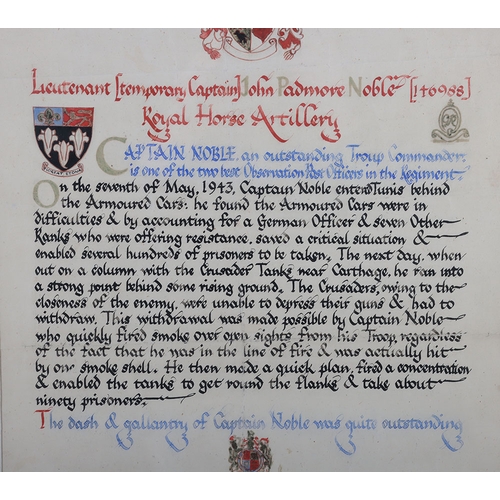 Lieutenant [temporary Captain] John Padmore Noble [146988]
Royal Horse Artillery
CAPTAIN NOBLE, an outstanding Troup Commander,
is one of the two best Observation Post Officers in the Regiment.
On the seventh of May, 1943, Captain Noble entered Tunis behind
the Armoured Cars: he found the Armoured Cars were in
difficulties & by accounting for a German Officer & seven Other
Ranks who were offering resistance, saved a critical situation &
enabled several hundreds of prisoners to be taken. The next day, when
out on a column with the Crusader Tanks near Carthage, he ran into
a strong point behind some rising ground. The Crusaders, owing to the
closeness of the enemy, were unable to depress their guns & had to
withdraw. This withdrawal was made possible by Captain Noble
who quickly fired smoke over open sights from his Troop, regardless
of the fact that he was in the line of fire & was actually hit
by one smoke shell. He then made a quick plan, fired a concentration
& enabled the tanks to get round the flanks & take about
ninety prisoners.
The dash & gallantry of Captain Noble was quite outstanding